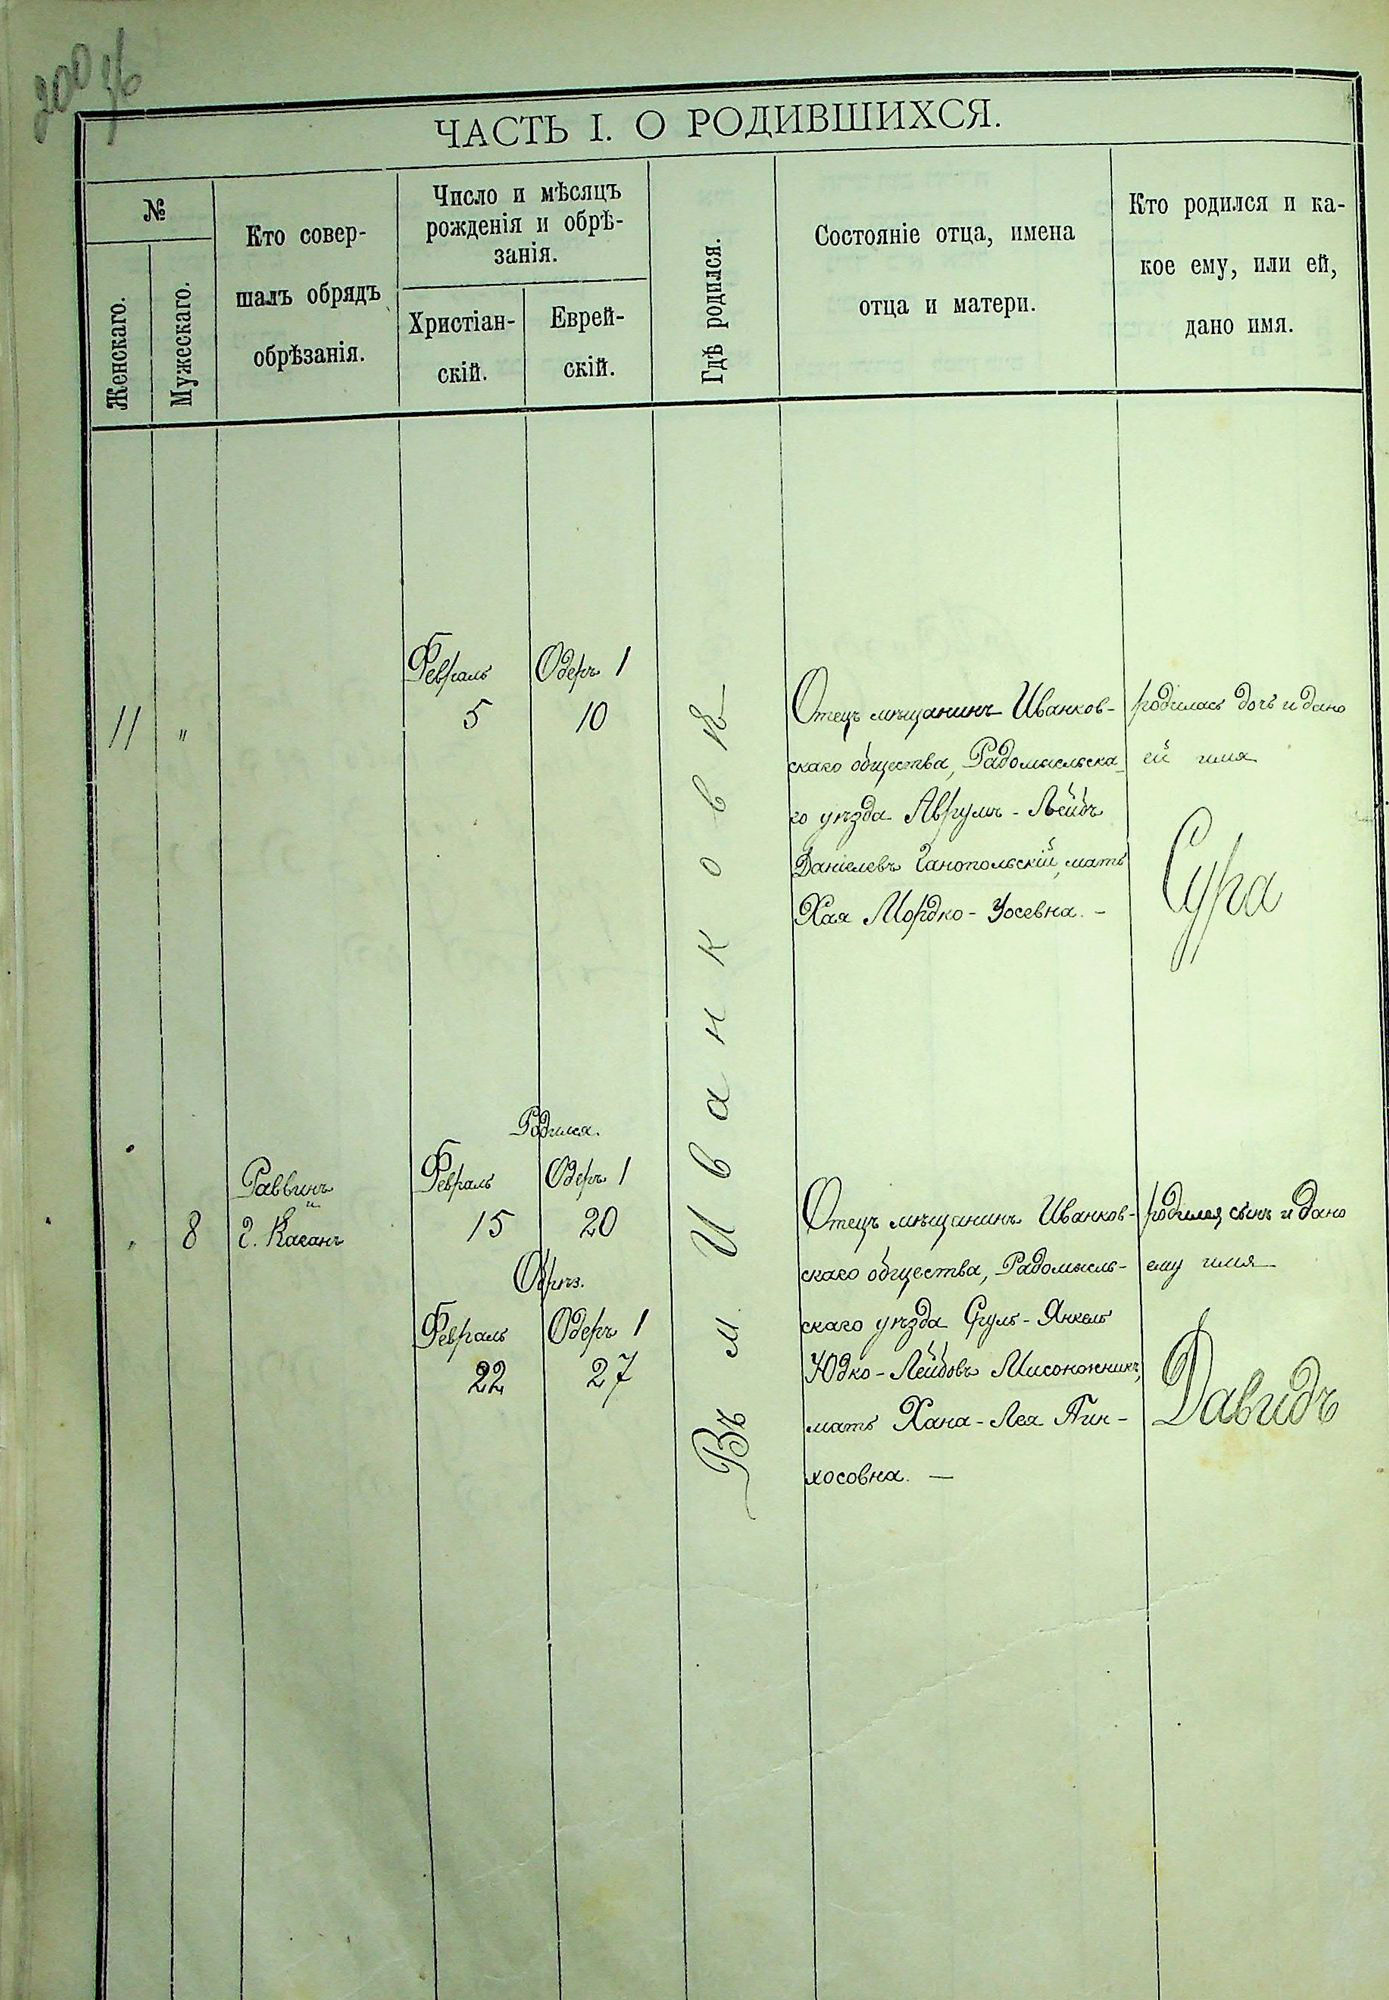 200 36
ЧАСТЬ I. О РОДИВШИХСЯ.
№
Женскаго.
Мужескаго.
Кто совер-
шалъ обрядъ
обрѣзанія.
Число и мѣсяцъ
рожденія и обрѣ-
занія.
Христіан-
скій.
Еврей-
скій.
Гдѣ родился.
Состояніе отца, имена
отца и матери.
Кто родился и ка-
кое ему, или ей,
дано имя.
Въ м. Иванковѣ
11 "
Февраль
5
Одеръ 1
10
Отецъ мѣщанинъ Иванков-
скаго общества, Радомысльска-
го уѣзда Аврумъ-Лейбъ
Даніелевъ Чанопольскій, мать
Хая Мордко-Уосевна. —
родилась дочь и дано
ей имя
Сура
" 8
Раввинъ
и
Каганъ
Родился.
Февраль
15
Одеръ 1
20
Обрѣз.
Февраль
22
Одеръ 1
27
Отецъ мѣщанинъ Иванков-
скаго общества, Радомысль-
скаго уѣзда Сруль-Янкель
Юдко-Лейбовъ Мисоножникъ,
мать Хана-Лея Пин-
хосовна. —
родился сынъ и дано
ему имя
Давидъ